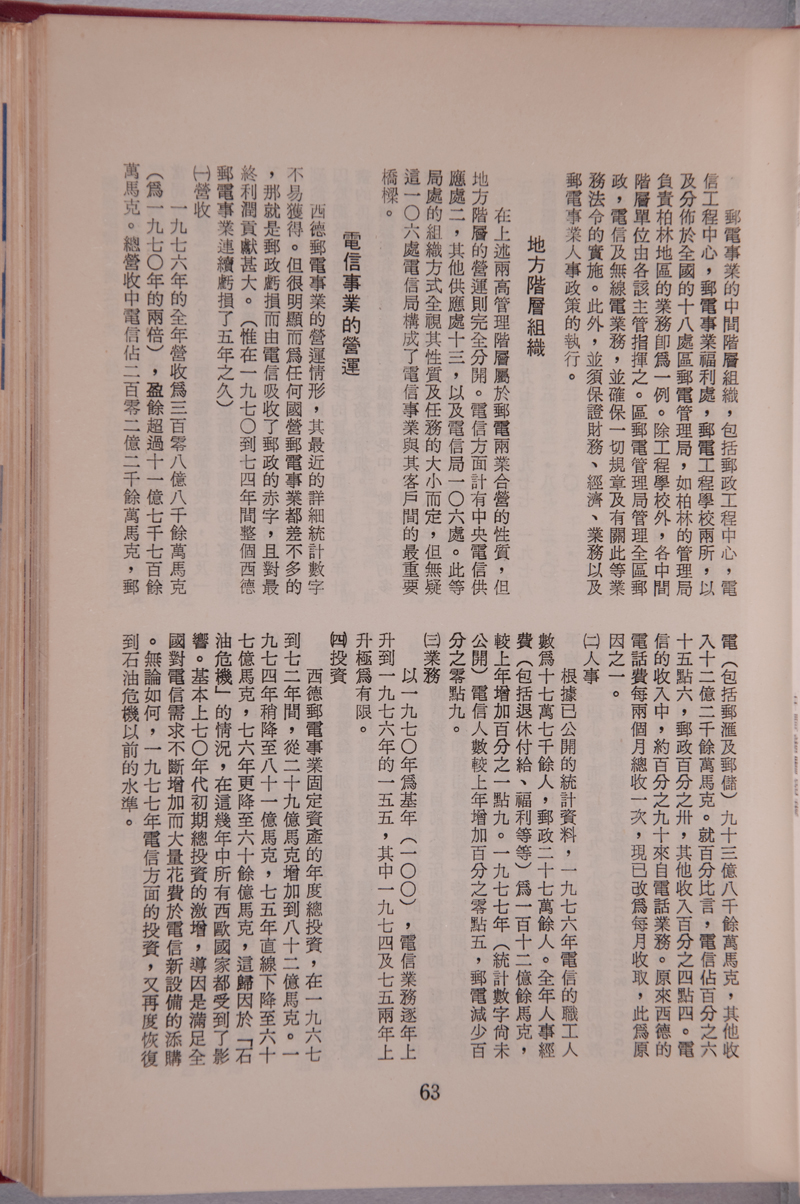 郵電事業的中間階層組織，包括郵政工程中心，電
信工程中心，郵電事業福利處，郵電工程學校兩所，以
及分佈於全國的十八處區郵電管理局，如柏林的管理局
負責柏林地區的業務卽爲一例。除工程學校外，各中間
階層單位由各該主管指揮之。區郵電管理局管理全區郵
政，電信及無線電業務，並確保一切規章及有關此等業
務法令的實施。此外，並須保證財務、經濟、業務以及
郵電事業人事政策的執行。
地方階層組織
在上述兩高管理階層屬於郵電兩業合營的性質，但
地方階層的營運則完全分開。電信方面計有中央電信供
應處二，其他供應處十三，以及電信局一〇六處。此等
局處的組織方式全視其性質及任務的大小而定，但無疑
這一〇六處電信局構成了電信事業與其客戶間的最重要
橋樑。
電信事業的營運
西德郵電事業的營運情形，其最近的詳細統計數字
不易獲得。但很明顯而爲任何國營郵電事業都差不多的
，那就是郵政虧損而由電信吸收了郵政的赤字，且對最
終利潤貢獻甚大。（惟在一九七〇到七四年間整個西德
郵電事業連續虧損了五年之久）
㈠營收
一九七六年的全年營收爲三百零八億八千餘萬馬克
（爲一九七〇年的兩倍），盈餘超過十一億七千七百餘
萬馬克。總營收中電信佔二百零二億二千餘萬馬克，郵
電（包括郵滙及郵儲）九十三億八千餘萬馬克，其他收
入十二億二千餘萬馬克。就百分比言，電信佔百分之六
十五點六，郵政百分之卅，其他收入百分之四點四。電
信的收入中，約百分之九十來自電話業務。原來西德的
電話費每兩個月總收一次，現已改爲每月收取，此爲原
因之一。
㈡人事
根據已公開的統計資料，一九七六年電信的職工人
數爲十七萬七千餘人，郵政二十七萬餘人。全年人事經
費（包括退休付給、福利等等）爲一百十二億餘馬克，
較上年增加百分之一點九。一九七七年（統計數字尙未
公開）電信人數較上年增加百分之零點五，郵電減少百
分之零點九。
㈢業務
以一九七〇年爲基年（一〇〇），電信業務逐年上
升到一九七六年的一五五，其中一九七四及七五兩年上
升極爲有限。
㈣投資
西德郵電事業固定資產的年度總投資，在一九六七
到七二年間，從二十九億馬克增加到八十二億馬克。一
九七四年稍降至八十一億馬克，七五年直線下降至六十
七億馬克，七六年更降至六十餘億馬克，這歸因於「石
油危機」的情況，在這幾年中所有西歐國家都受到了影
響。基本上七〇年代初期總投資的激增，導因是滿足全
國對電信需求不斷增加而大量花費於電信新設備的添購
。無論如何，一九七七年電信方面的投資，又再度恢復
到石油危機以前的水準。
63